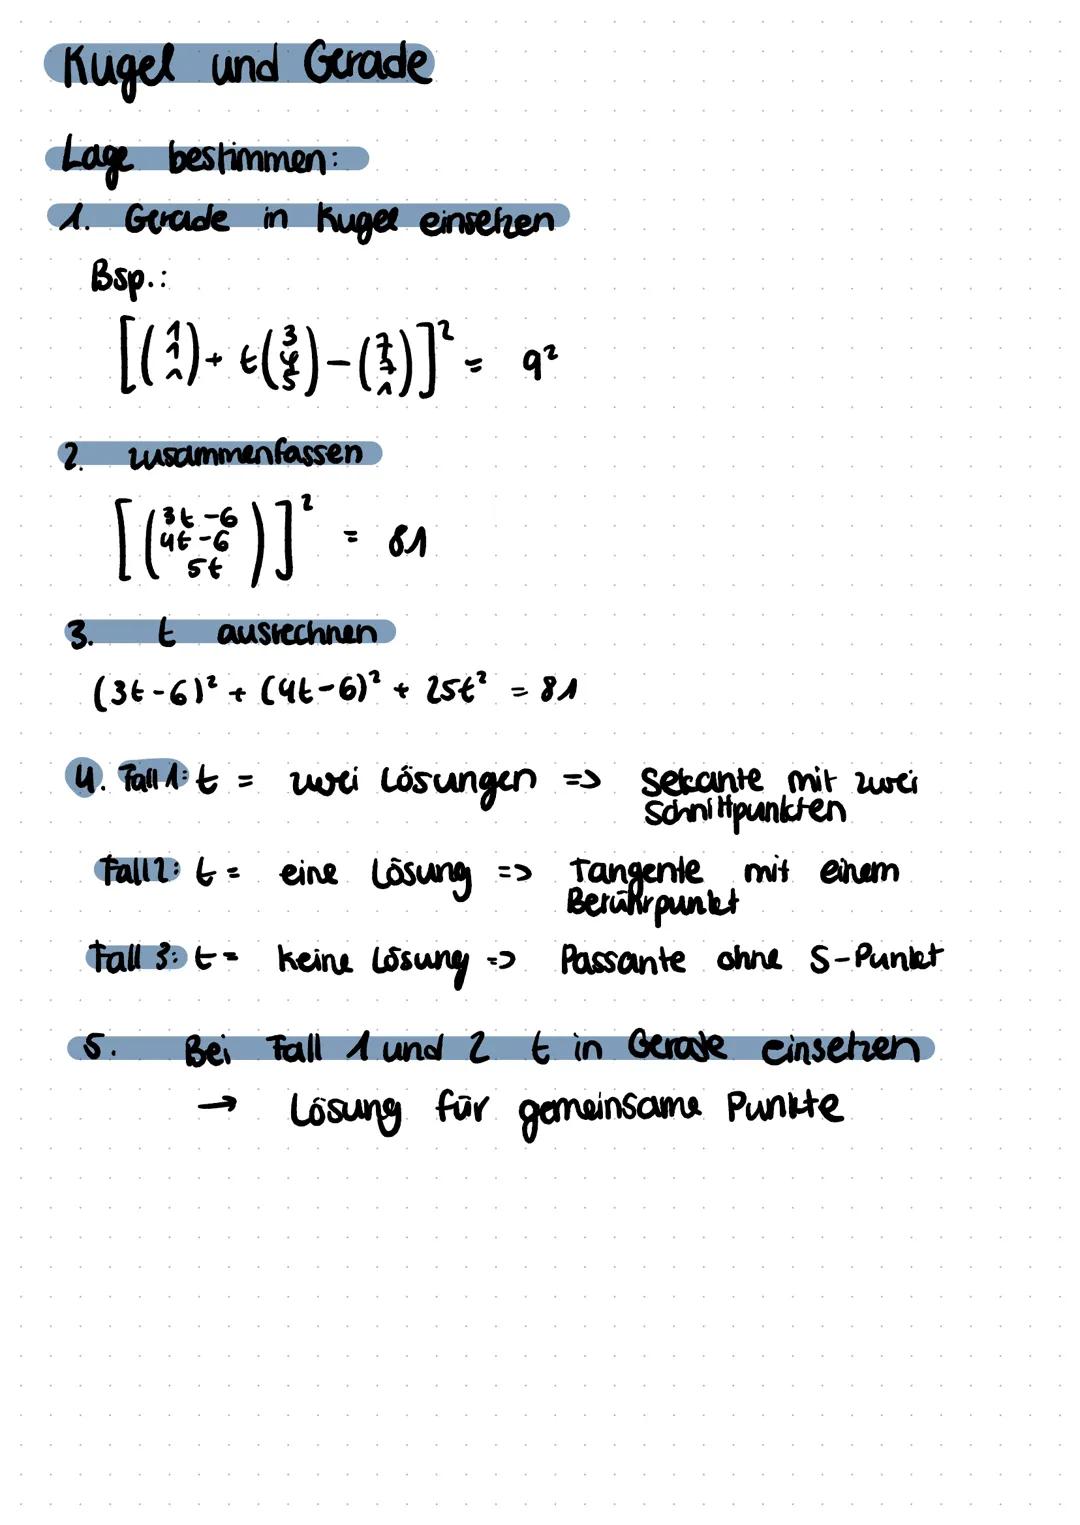 Kugel und Gerade
Lage bestimmen:
1. Gerade in Kugel einsetzen
Bsp.:
[(1 1 1) + t(3 4 5) - (7 7 1)]² = 9²
2. zusammenfassen
[(3t-6 4t-6 5t)]² = 81
3. t ausrechnen
(3t-6)² + (4t-6)² + 25t² = 81
4. Fall 1: t = zwei Lösungen => Sekante mit zwei
Schnittpunkten
Fall 2: t = eine Lösung => Tangente mit einem
Berührpunkt
Fall 3: t = keine Lösung => Passante ohne S-Punkt
5. Bei Fall 1 und 2 t in Gerade einsetzen
→ Lösung für gemeinsame Punkte